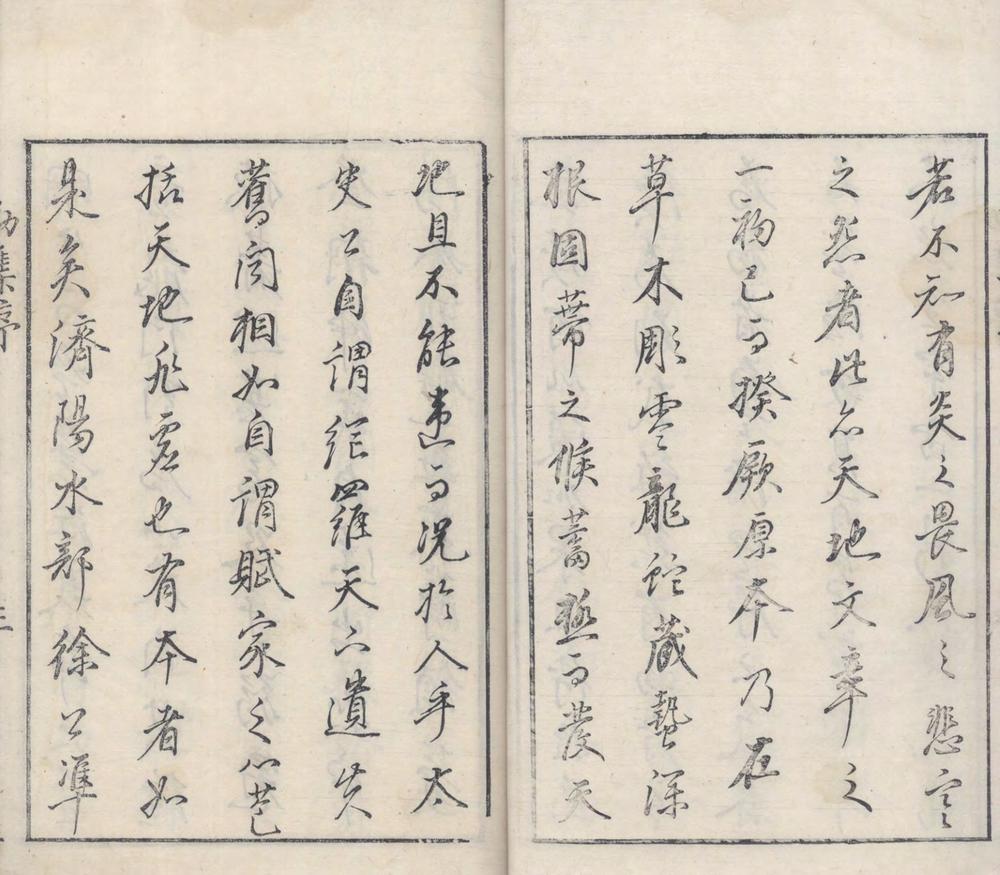 若不知有炎之畏風之悲寒
之怨者此亦天地文章之
一物已而揆厥原本乃在
草木彫零龍蛇藏蟄深
根固蔕之候蓄極而發天
地且不能違而況於人乎太
史公自謂網羅天下遺失
舊聞相如自謂賦家之心苞
括天地非虛也有本者如
是矣濟陽水部徐公準
集序